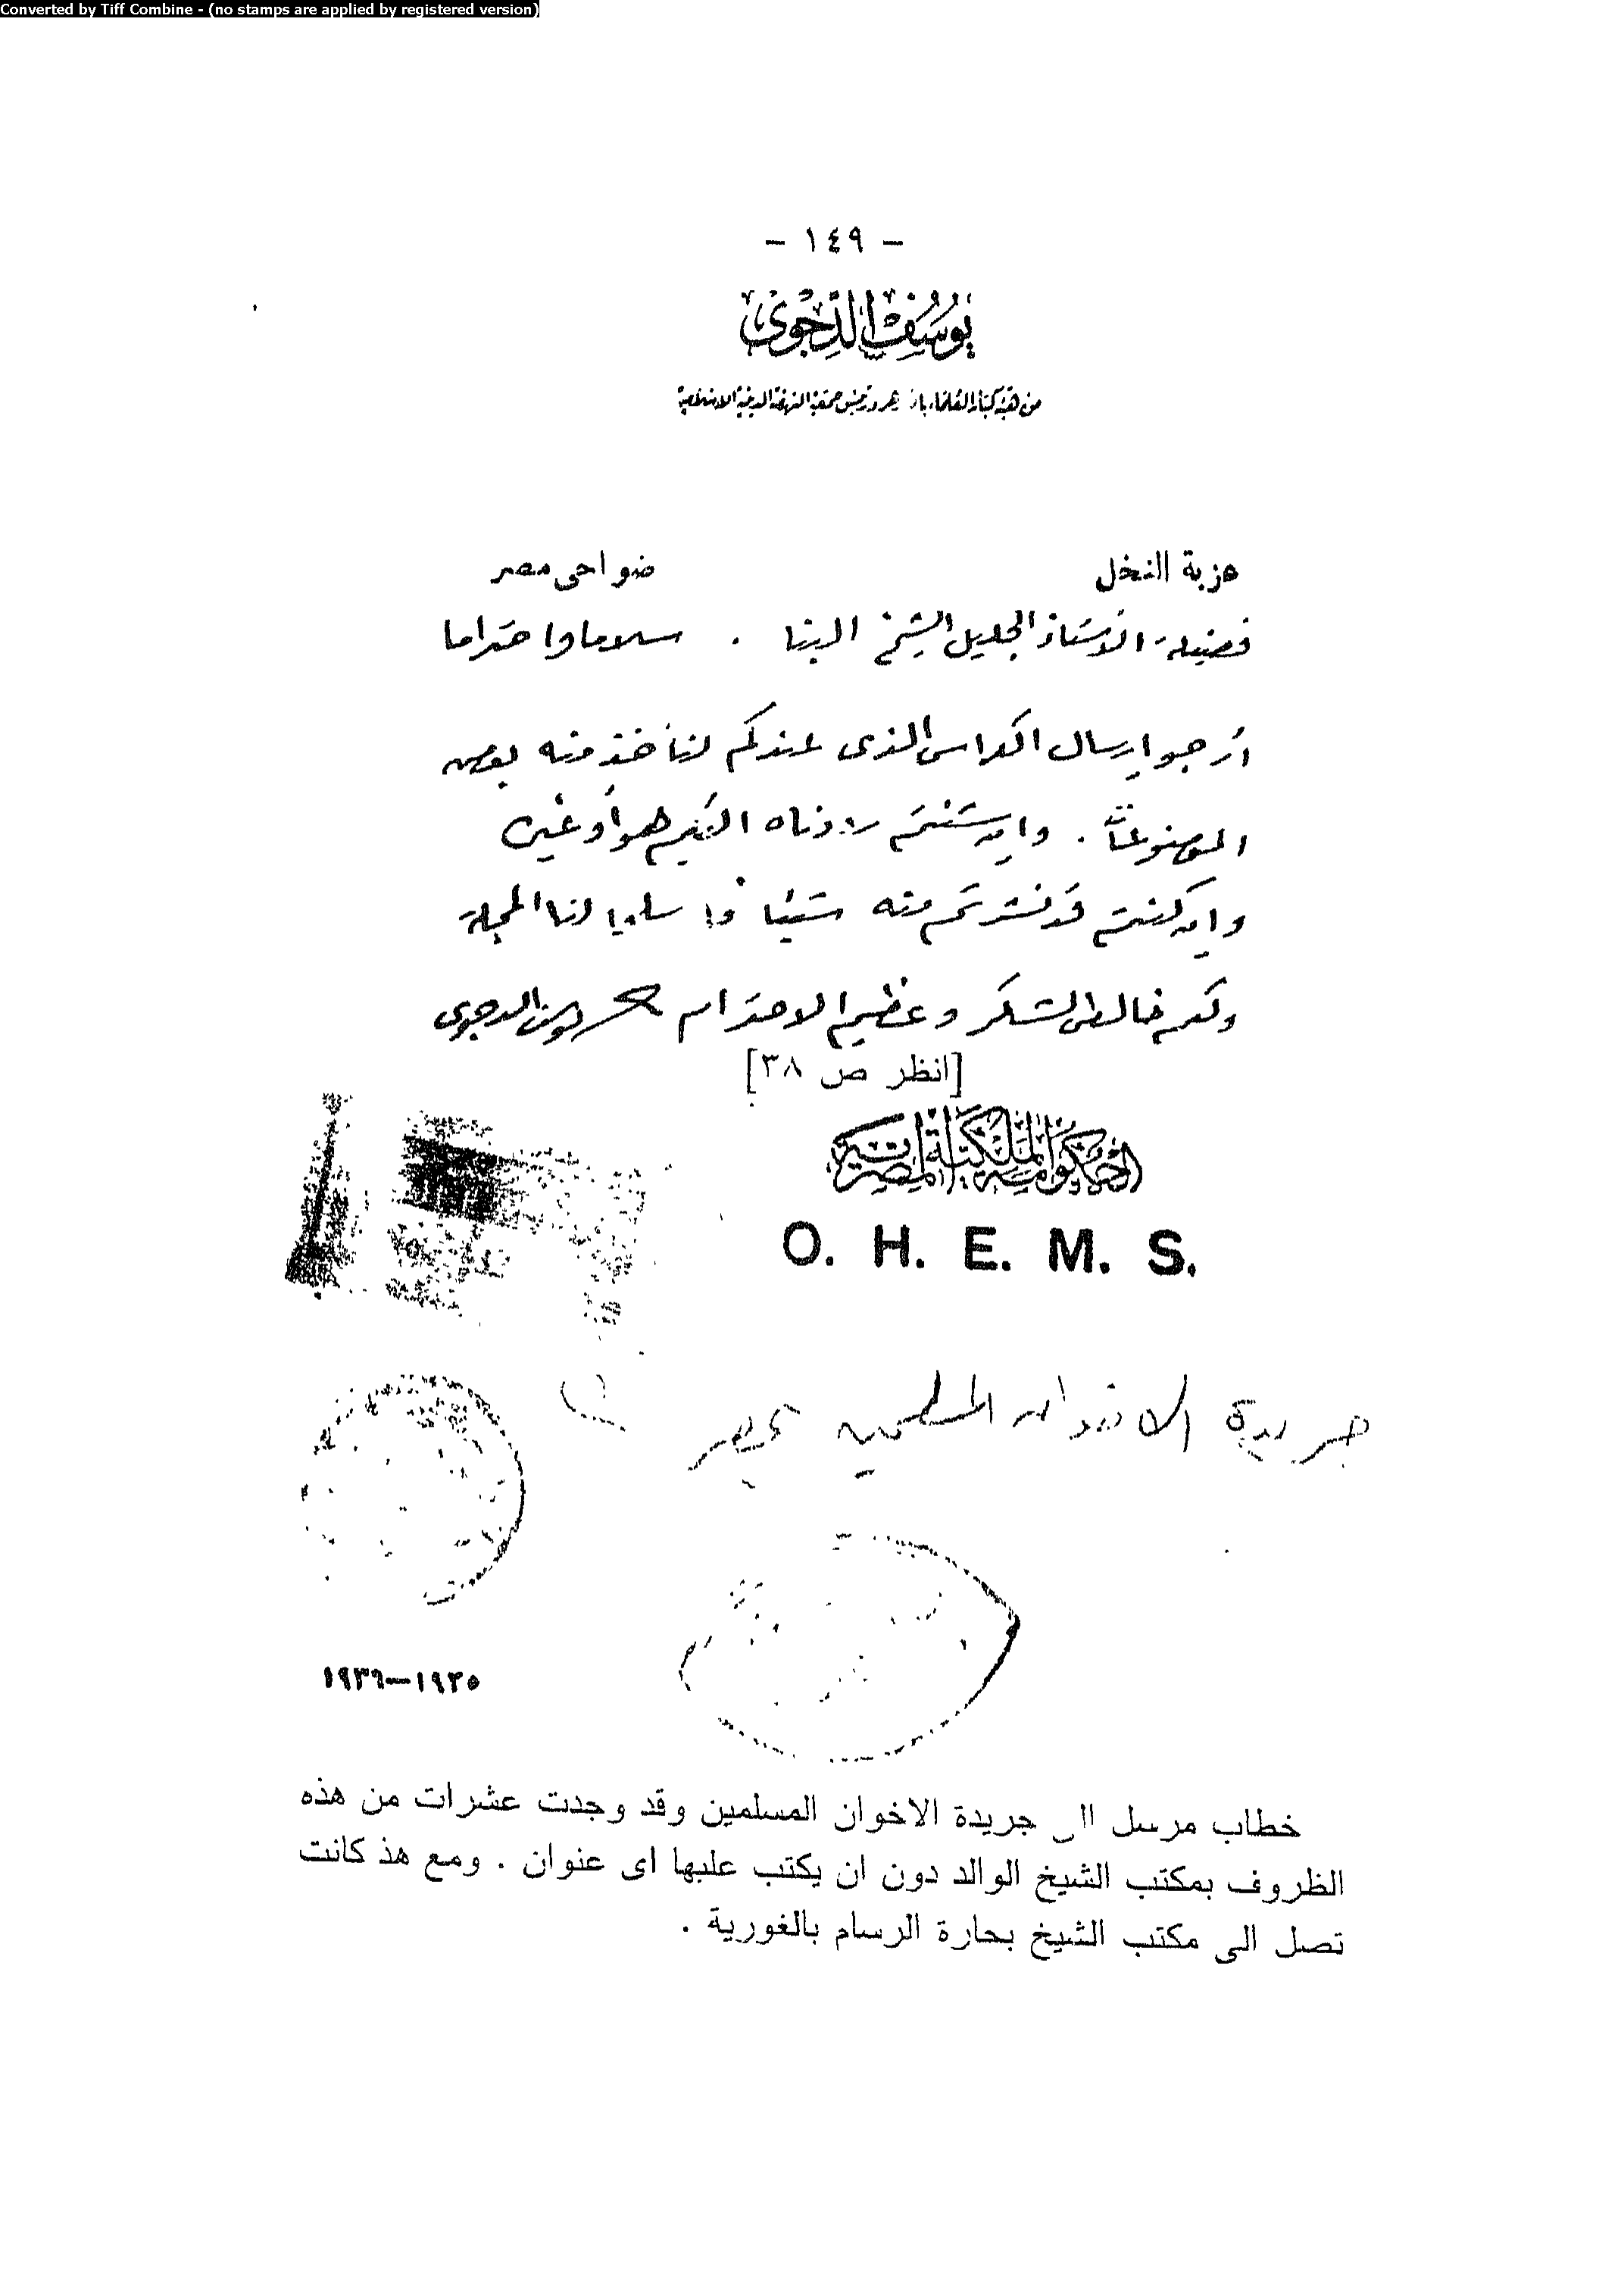 Converted by Tiff Combine - (no stamps are applied by registered version)
– ١٤٩ –
يوسف الدجوى
من هيئة كبار العلماء بالأزهر ورئيس جمعية النهضة الدينية الاسلامية
عزبة النخل ضواحى مصر
فضيلة الأستاذ الجليل الشيخ البنا . سلاما واحتراما
أرجو إرسال الكراس الذى عندكم لنأخذ منه بعض
الموضوعات . وإن شئتم رددناه اليكم هو أو غيره
وإن كنتم قد نشرتم منه شيئا فأرسلوا لنا المجلة
ولكم خالص الشكر وعظيم الاحترام يوسف الدجوى
[انظر ص ٣٨]
الحكومة الملكية المصرية
O. H. E. M. S.
جريدة الاخوان المسلمين بمصر
١٩٣٥–١٩٣٦
خطاب مرسل الى جريدة الاخوان المسلمين وقد وجدت عشرات من هذه
الظروف بمكتب الشيخ الوالد دون ان يكتب عليها اى عنوان . ومع هذ كانت
تصل الى مكتب الشيخ بحارة الرسام بالغورية .